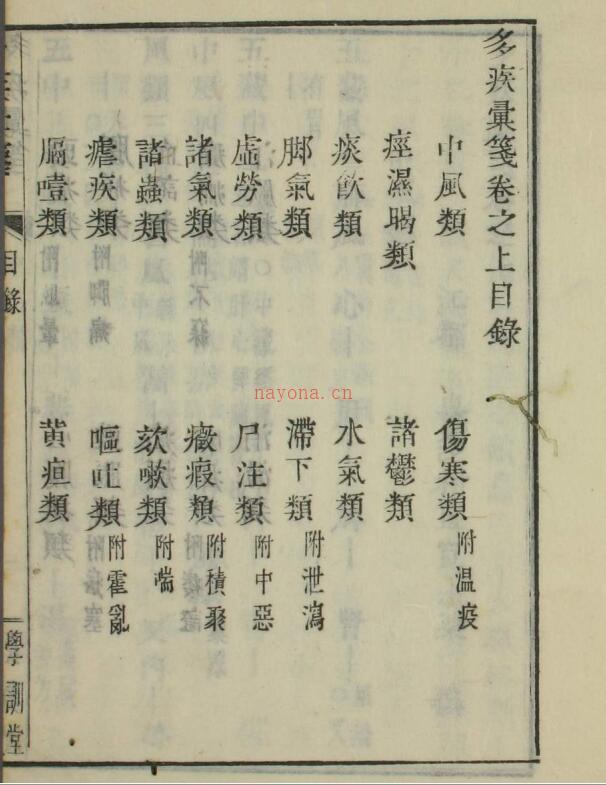 多疾彙箋卷之上目錄
中風類 傷寒類附温疫
痙濕暍類 諸鬱類
痰飲類 水氣類
脚氣類 滯下類附泄瀉
虛勞類 尸注類附中惡
諸氣類 癥瘕類附積聚
諸蟲類 欬嗽類附喘
瘧疾類 嘔吐類附霍亂
膈噎類 黄疸類
目錄
學訓堂
nayona.cn